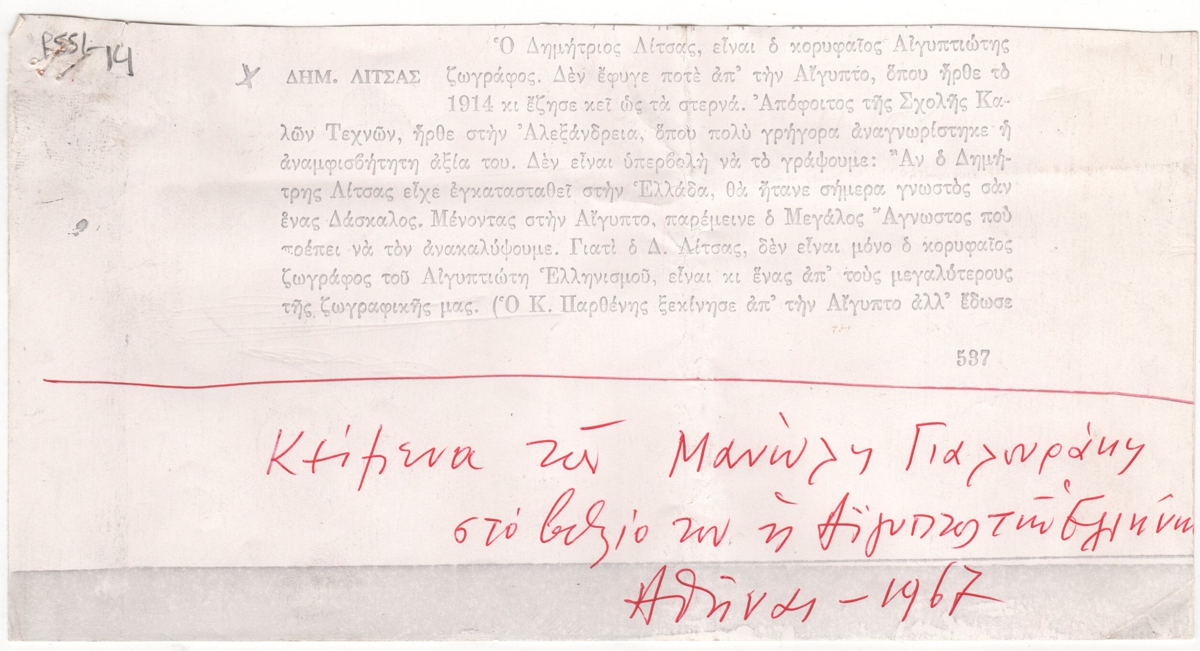 14
Ὁ Δημήτριος Λίτσας, εἶναι ὁ κορυφαῖος Αἰγυπτιώτης
ΔΗΜ. ΛΙΤΣΑΣ ζωγράφος. Δὲν ἔφυγε ποτὲ ἀπ' τὴν Αἴγυπτο, ὅπου ἦρθε τὸ
1914 κι ἔζησε κεῖ ὡς τὰ στερνά. Ἀπόφοιτος τῆς Σχολῆς Κα-
λῶν Τεχνῶν, ἦρθε στὴν Ἀλεξάνδρεια, ὅπου πολὺ γρήγορα ἀναγνωρίστηκε ἡ
ἀναμφισβήτητη ἀξία του. Δὲν εἶναι ὑπερβολὴ νὰ τὸ γράψουμε: Ἂν ὁ Δημή-
τρης Λίτσας εἶχε ἐγκατασταθεῖ στὴν Ἑλλάδα, θὰ ἤτανε σήμερα γνωστὸς σὰν
ἕνας Δάσκαλος. Μένοντας στὴν Αἴγυπτο, παρέμεινε ὁ Μεγάλος Ἄγνωστος ποὺ
πρέπει νὰ τὸν ἀνακαλύψουμε. Γιατὶ ὁ Δ. Λίτσας, δὲν εἶναι μόνο ὁ κορυφαῖος
ζωγράφος τοῦ Αἰγυπτιώτη Ἑλληνισμοῦ, εἶναι κι ἕνας ἀπ' τοὺς μεγαλύτερους
τῆς ζωγραφικῆς μας. (Ὁ Κ. Παρθένης ξεκίνησε ἀπ' τὴν Αἴγυπτο ἀλλ' ἔδωσε
537
Κείμενα τοῦ Μανώλη Γιαλουράκη
στό βιβλίο του ἡ Αἴγυπτος τῶν Ἑλλήνων
Ἀθῆναι – 1967